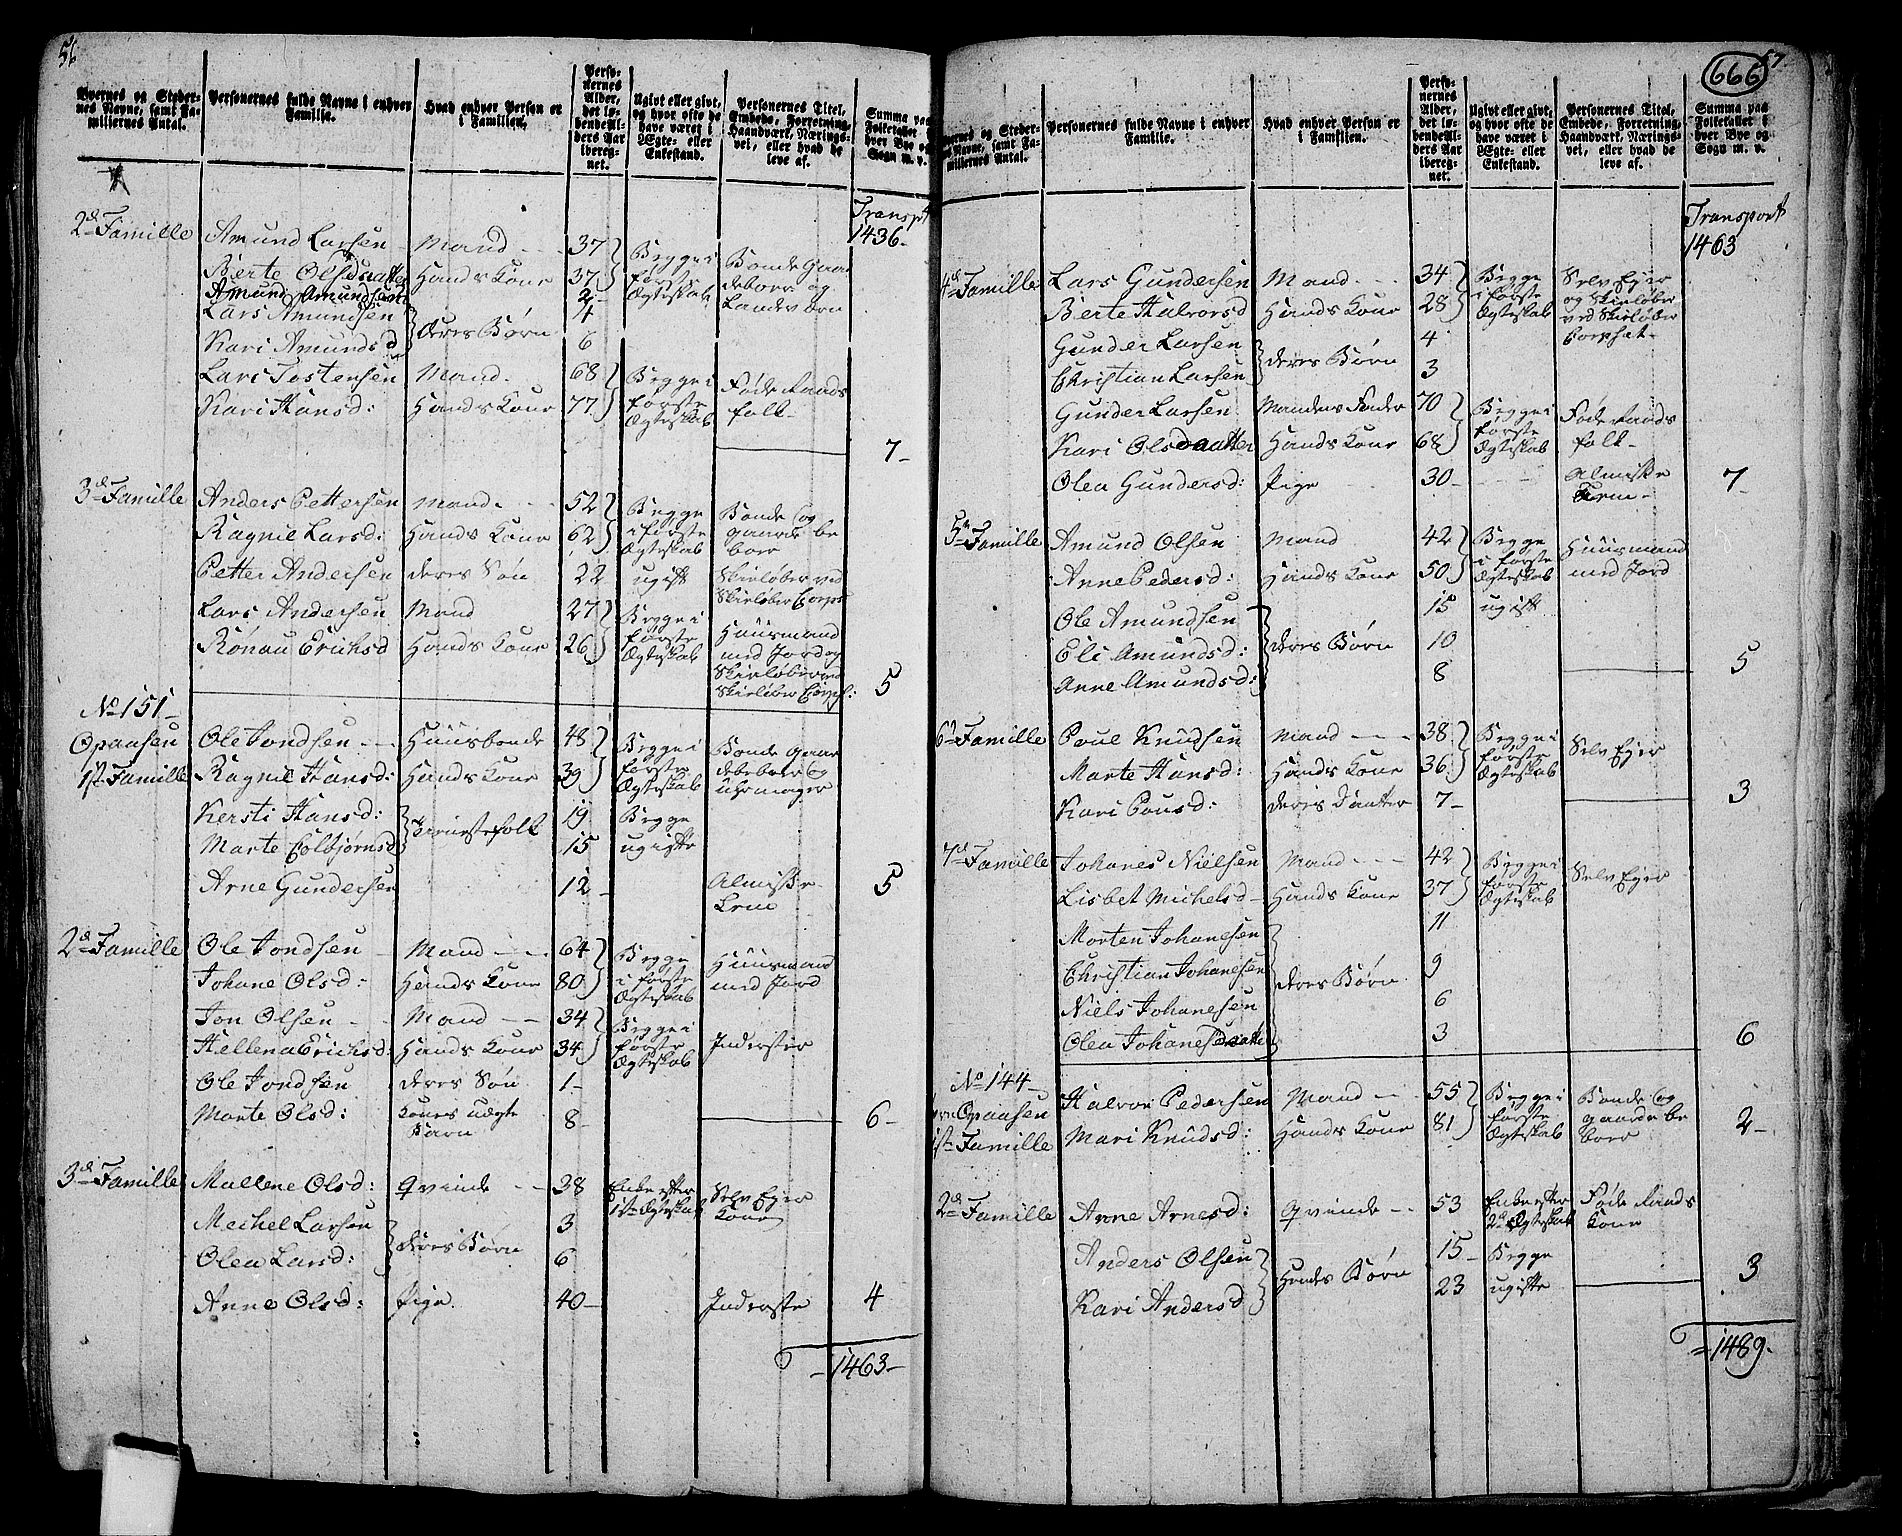 56
Byernes og Stedernes Navne, samt Familiernes Antal.
Personernes fulde Navne i enhver Familie.
Hvad enhver Person er i Familien.
Personernes Alder, det løbende Alders Aar iberegnet.
Ugivt eller givt, og hvor ofte de have været i Ægte- eller Enkestand.
Personernes Titel, Embede, Forretning, Haandværk, Næringsvei, eller hvad de leve af.
Summa paa Folketallet i hver Bye og Sogn m. v.
Transpt
1436-
2d Familie Amund Larsen Mand 37 Begge i første Ægteskab Bonde Gaardeboer og Landeværn
Berte Olsdaatter Hands Kone 37
Amund Amundsen 2
Lars Amundsen Deres Børn 4
Kari Amundsd 6
Lars Jostensen Mand 68 Begge i første Ægteskab Føderaads folk
Kari Hansd: Hands Kone 77
7-
3d Familie Anders Pettersen Mand 52 Begge i første Ægteskab Bonde og gaardebeboer
Ragnil Larsd: Hands Kone 62
Petter Andersen deres Søn 22 ugift Skieløber ved Skieløber Corps
Lars Andersen Mand 27 Begge i første Ægteskab Huusmand med Jord og Skieløber ved Skieløber Corps:
Rønau Erichsd Hands Kone 26
5
No 151-
Opaasen
1ste Familie Ole Jondsen Huusbonde 48 Begge i første Ægteskab Bonde Gaardebeboer og uhrmager
Ragnil Hansd: Hands Kone 39
Kersti Hansd: Tienistefolk 19 Begge ugifte
Marte Colbjørnsd 15
Arne Gundersen 12- Almisse Lem
5
2d Familie Ole Jondsen Mand 64 Begge i første Ægteskab Huusmand med Jord
Johane Olsd: Hands Kone 80
Jon Olsen Mand 34 Begge i første Ægteskab Inderster
Hellena Erichsd: Hands Kone 34
Ole Jondsen deres Søn 1-
Marte Olsd: Kones uægte Barn 8-
6-
3d Familie Mallene Olsd: Qvinde 38 Enke efter 1ste Ægteskab Selv Eger Kone
Meihel Larsen deres Børn 3
Olea Larsd: 6
Anne Olsd: Pige. 40- Inderste
4
-1463-
57
666
Byernes og Stedernes Navne, samt Familiernes Antal.
Personernes fulde Navne i enhver Familie.
Hvad enhver Person er i Familien.
Personernes Alder, det løbende Alders Aar iberegnet.
Ugivt eller givt, og hvor ofte de have været i Ægte- eller Enkestand.
Personernes Titel, Embede, Forretning, Haandværk, Næringsvei, eller hvad de leve af.
Summa paa Folketallet i hver Bye og Sogn m. v.
Transport
1463
4d Familie Lars Gundersen Mand 34 Begge i første Ægteskab Selv Eger og Skieløber ved Skieløber Corpset-
Berte Halvorsd Hands Kone 28
Gunder Larsen deres Børn 4
Christian Larsen 3
Gunder Larsen Mandens Fader 70 Begge i første Ægteskab Føderaads folk-
Kari Olsdaatter Hands Kone 68
Olea Gundersd: Pige 30 Almisse Lem-
7-
5te Familie Amund Olsen Mand 42 Begge i første Ægteskab Huusmand med Jord
Anne Pedersd: Hands Kone 50
Ole Amundsen 15 ugift
Eli Amundsd: deres Børn 10
Anne Amundsd: 8
5
6d Familie Poul Knudsen Mand 38 Begge i første Ægteskab Selv Eger
Marte Hansd: Hands Kone 36
Kari Pousd: deres Daatter 7-
3
7d Familie Johanes Nielsen Mand 42 Begge i første Ægteskab Selv Eger
Lisbet Michelsd Hands Kone 37
Morten Johanesen 11
Christian Johanesen deres Børn 9
Niels Johanesen 6
Olea Johanesdaatter 3
6
No 144-
Opaasen
1ste Familie Halvor Pedersen Mand 55 Begge i første Ægteskab Bonde og gaardebeboer
Mari Knudsd: Hands Kone 81
2-
2d Familie Anne Arnesd: Qvinde 53 Enke efter 2d Ægteskab Føderaads Kone
Anders Olsen Hendes Børn 15- Begge ugifte
Kari Andersd 23
3
=1489.